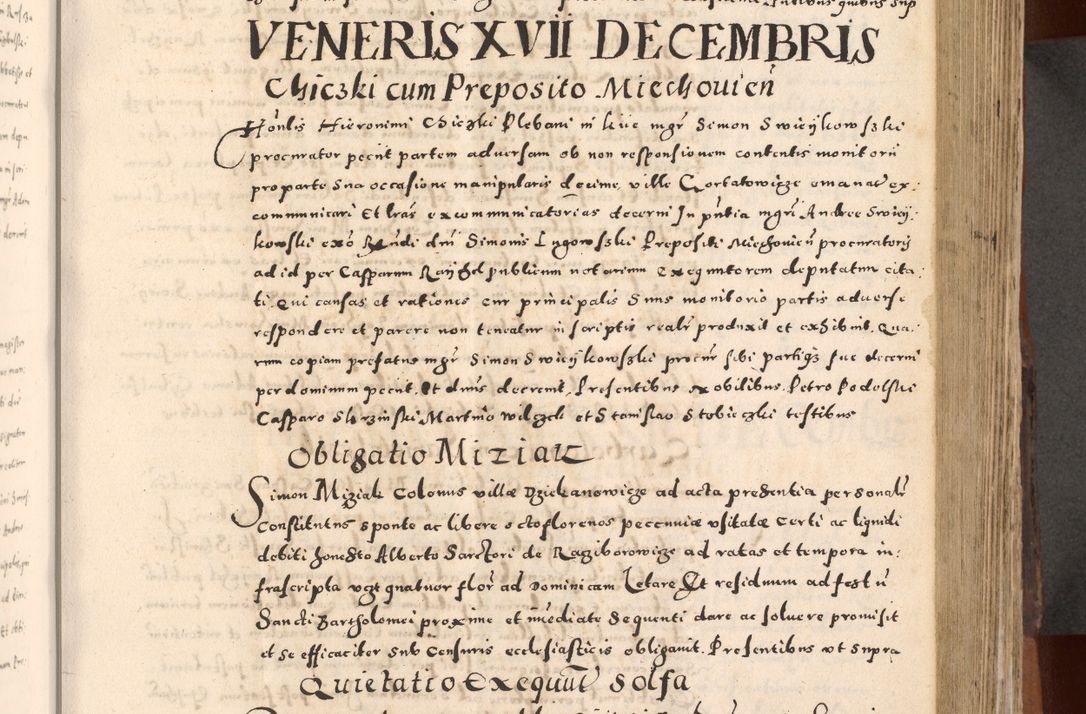 VENERIS XVII DECEMBRIS
Chiczki cum Preposito Miechouien̄
Hōnlis Hieronimi Chiczki Plebani in kiic mgr̄ Simon Swieijkowszki
procurator peciit partem aduersam ob non responsionem contentis monitorii
pro parte sua occasione manipularis decime, ville Gorbatowicze emanat ex:
communicari Et lrās excommunicatorias decerni In pn̄tia mgrī Andree Swieij:
kowski exō Rn̄di dnī Simonis Lugowszki Prepositi Miechouien̄ procuratorij
ad id per Casparum Raijhel publicum notarium executorem deputatum cita:
ti. Qui causas et rationes cur principalis suus monitorio partis aduerse
respondere et parere non teneatur in scriptis realr̄ produxit et exhibuit. Qua:
rum copiam prefatus mgr̄ Simon Swieijkowszki procur̄ sibi partiqȝ sue decerni
per dominum peciit. Et dnūs decreuit. Presentibus nobilibus. Petro Podolski
Casparo Skrzinski Martino Wilczek et Stanislao Stobieczki testibus
Obligatio Miziak
Simon Miziak Colonus villæ Dziekanowicze ad acta presentia personalr̄
Constitutus sponte ac libere octo florenos peccuniæ vsitatæ Certi ac liquidi
debiti honesto Alberto Sarctori de Raziborowicze ad ratas et tempora in:
frascripta vgt quatuor flor̄ ad Dominicam Letare Et residuum ad festū
Sancti Bartholomei proxime et im̄ediate sequenti dare ac soluere promisit
et se efficaciter sub Censuris ecclesiasticis obligauit. Presentibus vt supra
Quietatio Exequūt Solfa